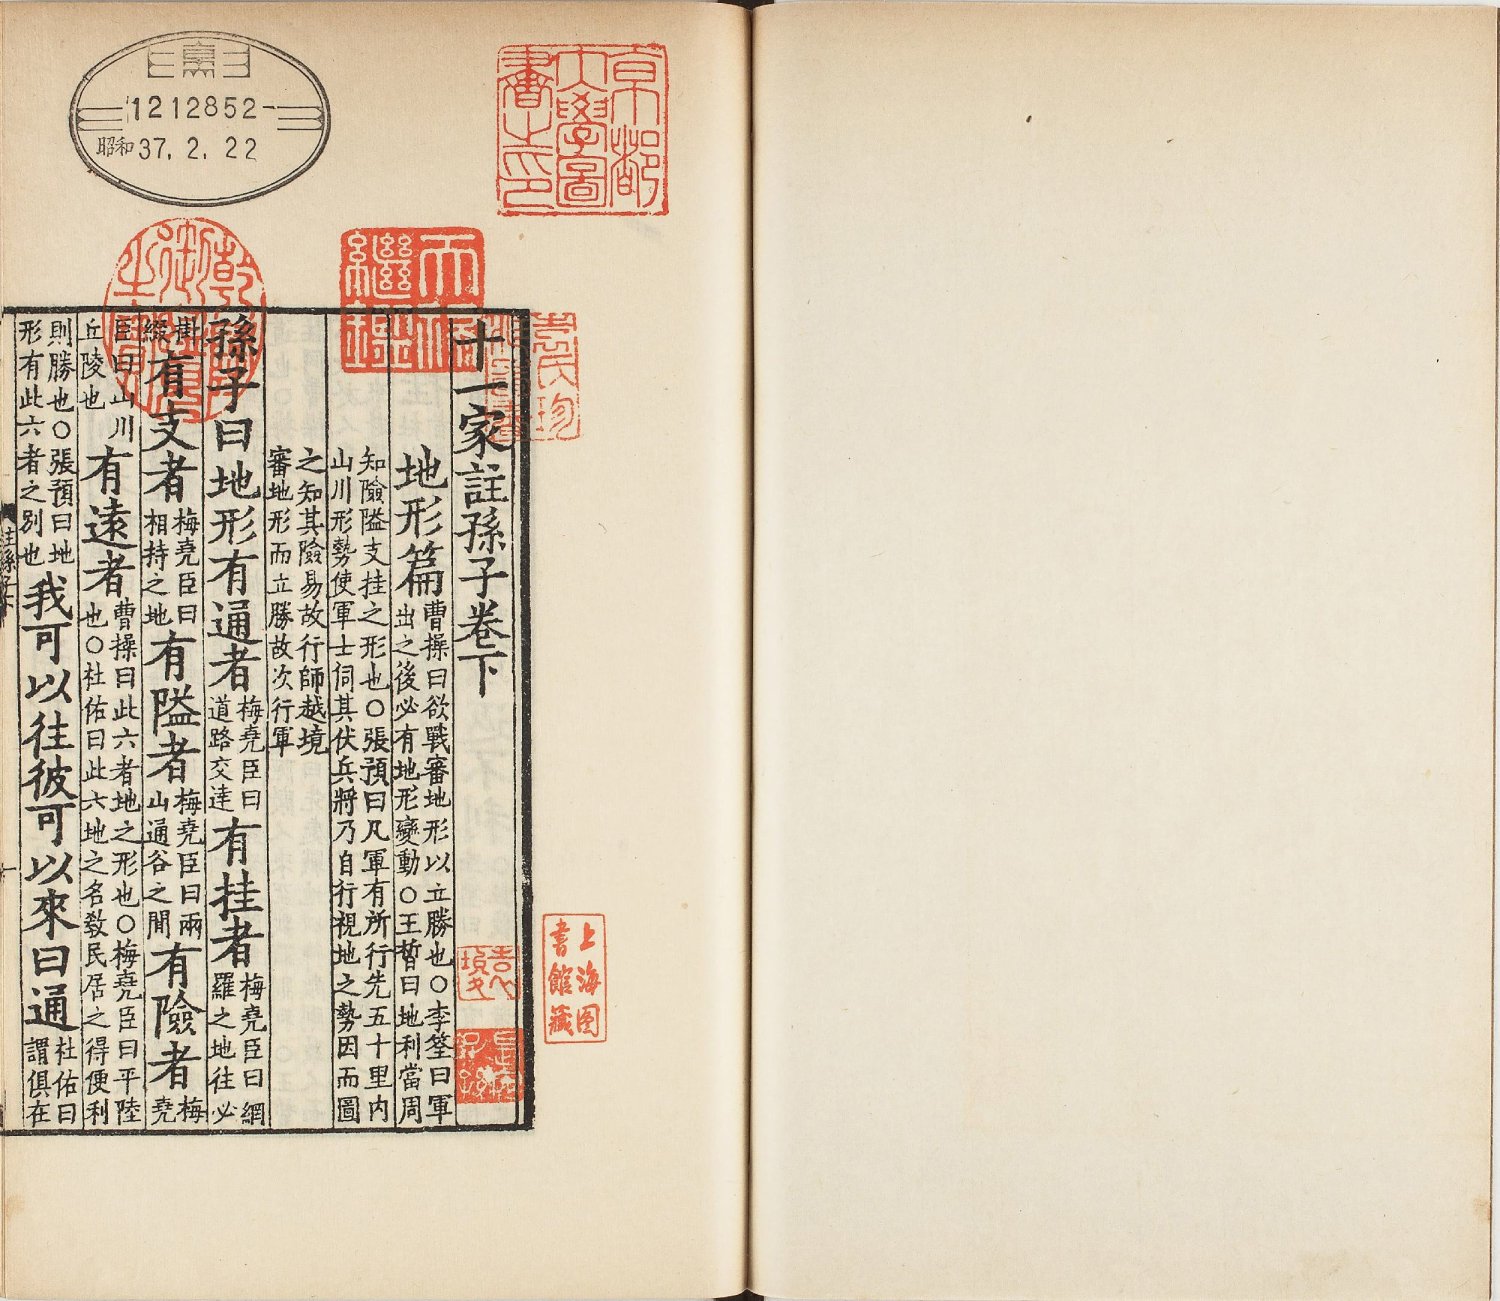 1212852
昭和37.2.22
京都
大學圖
書之印
上海图
書館藏
十一家註孫子卷下
地形篇曹操曰欲戰審地形以立勝也○李筌曰軍出之後必有地形變動○王晳曰地利當周
知險隘支挂之形也○張預曰凡軍有所行先五十里内山川形勢使軍士伺其伏兵將乃自行視地之勢因而圖
之知其險易故行師越境審地形而立勝故次行軍
孫子曰地形有通者梅堯臣曰道路交達有挂者梅堯臣曰網羅之地往必
掛綴有支者梅堯臣曰相持之地有隘者梅堯臣曰兩山通谷之間有險者梅堯
臣曰山川丘陵也有遠者曹操曰此六者地之形也○杜佑曰此六地之名教民居之得便利○梅堯臣曰平陸
則勝也○張預曰地形有此六者之别也我可以往彼可以來曰通杜佑曰謂俱在